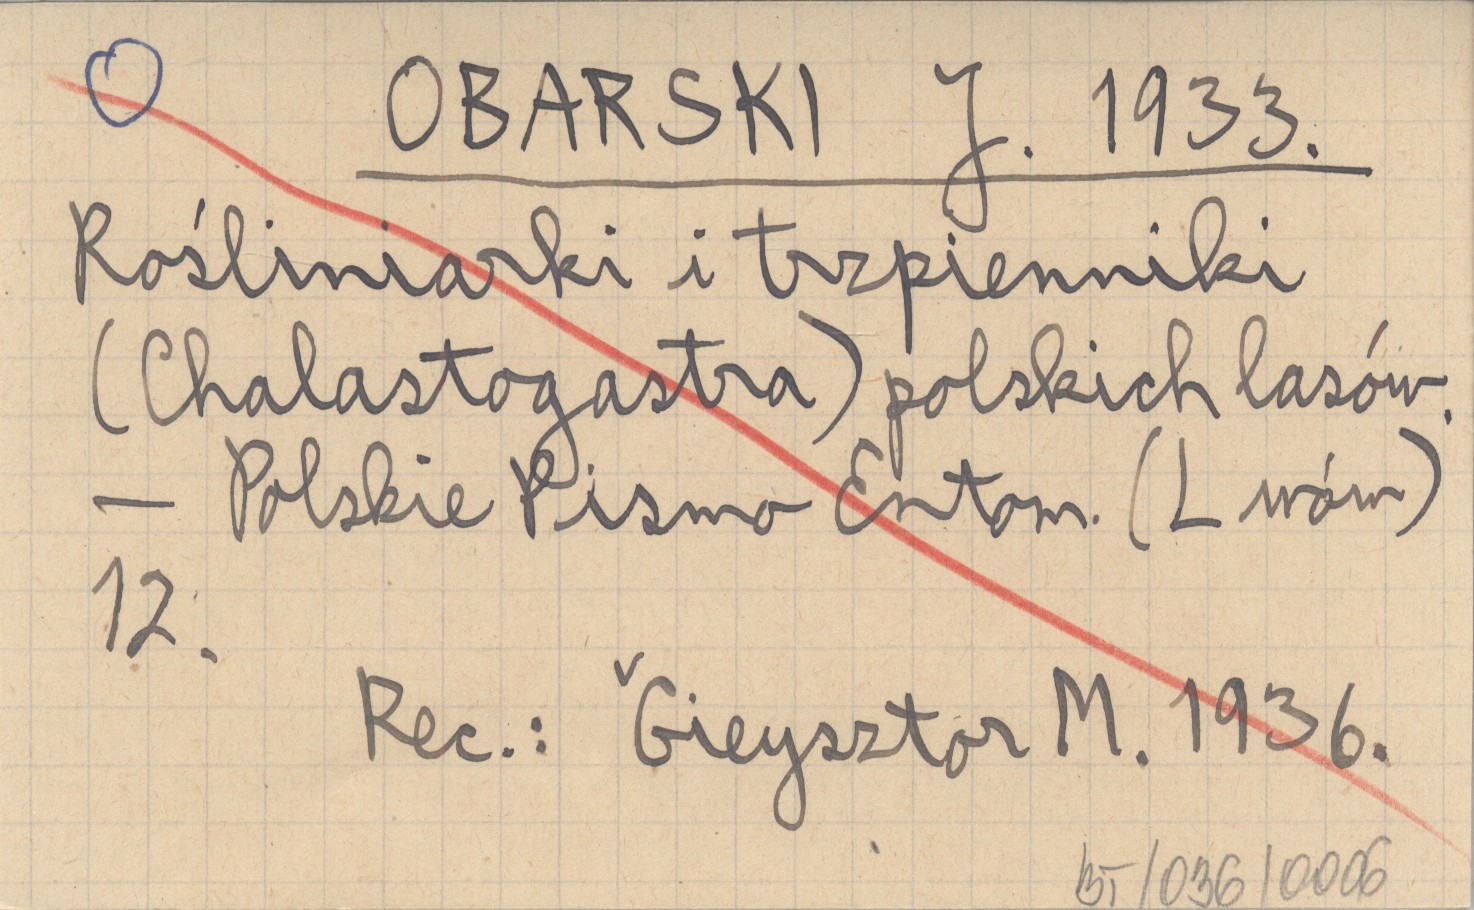 OBARSKI J. 1933.
Rośliniarki i trzpienniki
(Chalastogastra) polskich lasów.
— Polskie Pismo Entom. (Lwów)
12.
Rec.: Gieysztor M. 1936.
BT/036/0006